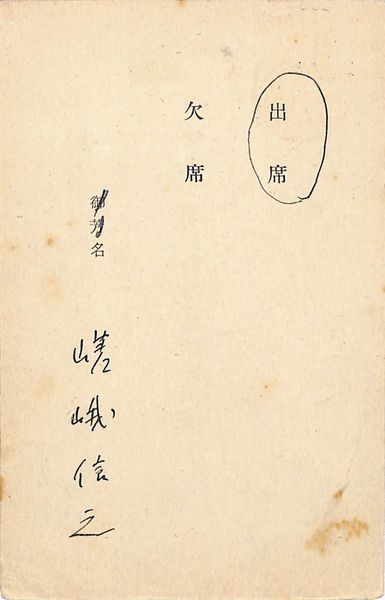 出席
欠席
御芳名
嵯峨信之